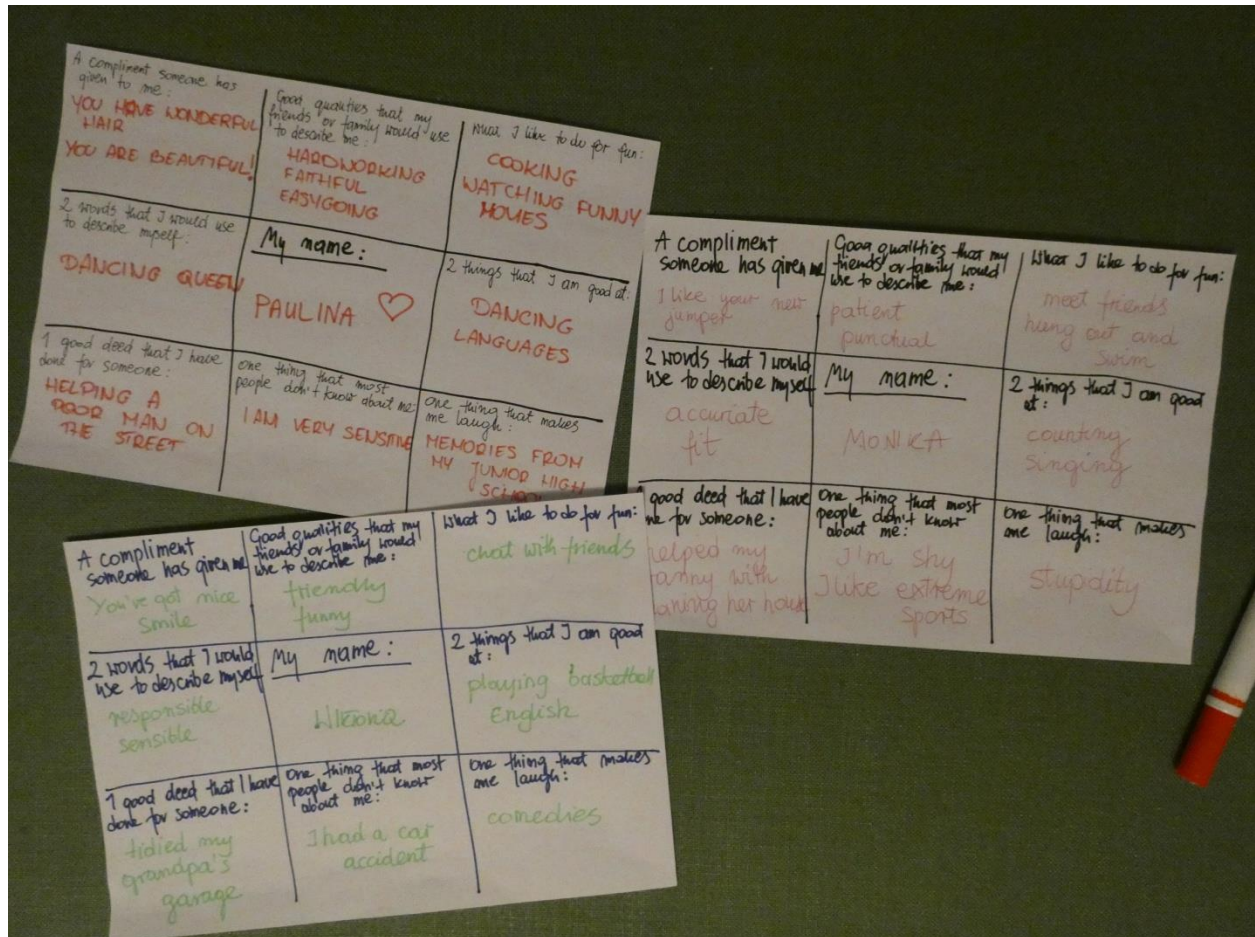 A compliment someone has
given to me:
YOU HAVE WONDERFUL
HAIR
YOU ARE BEAUTIFUL!
Good qualities that my
friends or family would use
to describe me:
HARDWORKING
FAITHFUL
EASYGOING
What I like to do for fun:
COOKING
WATCHING FUNNY
MOVIES
2 words that I would use
to describe myself:
DANCING QUEEN
My name:
PAULINA ♡
2 things that I am good at:
DANCING
LANGUAGES
1 good deed that I have
done for someone:
HELPING A
POOR MAN ON
THE STREET
one thing that most
people didn't know about me:
I AM VERY SENSITIVE
one thing that makes
me laugh:
MEMORIES FROM
MY JUNIOR HIGH
SCHOOL
A compliment
someone has given me
I like your new
jumper
Good qualities that my
friends or family would
use to describe me:
patient
punctual
What I like to do for fun:
meet friends
hung out and
swim
2 words that I would
use to describe myself
accuriate
fit
My name:
MONIKA
2 things that I am good
at:
counting
singing
good deed that I have
for someone:
helped my
with
her house
One thing that most
people didn't know
about me:
I'm shy
I like extreme
sports
one thing that makes
me laugh:
stupidity
A compliment
someone has given me
You've got nice
smile
Good qualities that my
friends or family would
use to describe me:
friendly
funny
What I like to do for fun:
chat with friends
2 words that I would
use to describe myself
responsible
sensible
My name:
Wiktoria
2 things that I am good
at:
playing basketball
English
1 good deed that I have
done for someone:
tidied my
grandpa's
garage
One thing that most
people didn't know
about me:
I had a car
accident
one thing that makes
me laugh:
comedies